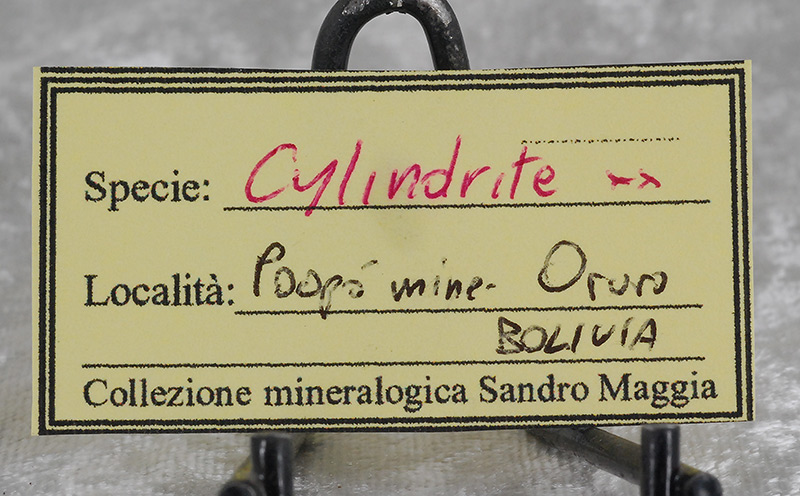 Specie: Cylindrite xx
Località: Poopó mine - Oruro
BOLIVIA
Collezione mineralogica Sandro Maggia